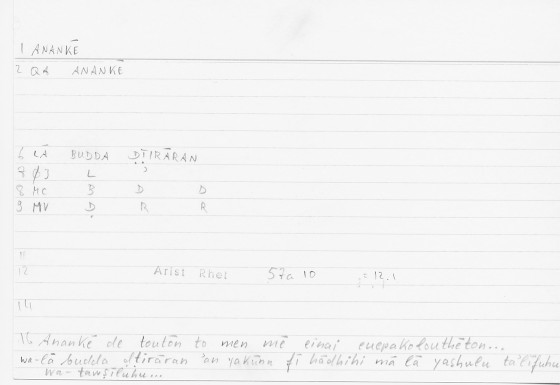 1 ANANKĒ
2 QA ANANKĒ
6 LĀ BUDDA ḌṬIRĀRAN
7 ∅J L ʾ
8 MC B D D
9 MV Ḍ R R
11
12 Arist Rhet 57a 10 = 12.1
14
15 Anankē de toutōn to men mē einai euepakolouthēton...
wa-lā budda ḍṭirāran ʾan yakūna fī hādhihi mā lā yashulu taʾlīfuhu
wa-tawṣīluhu...